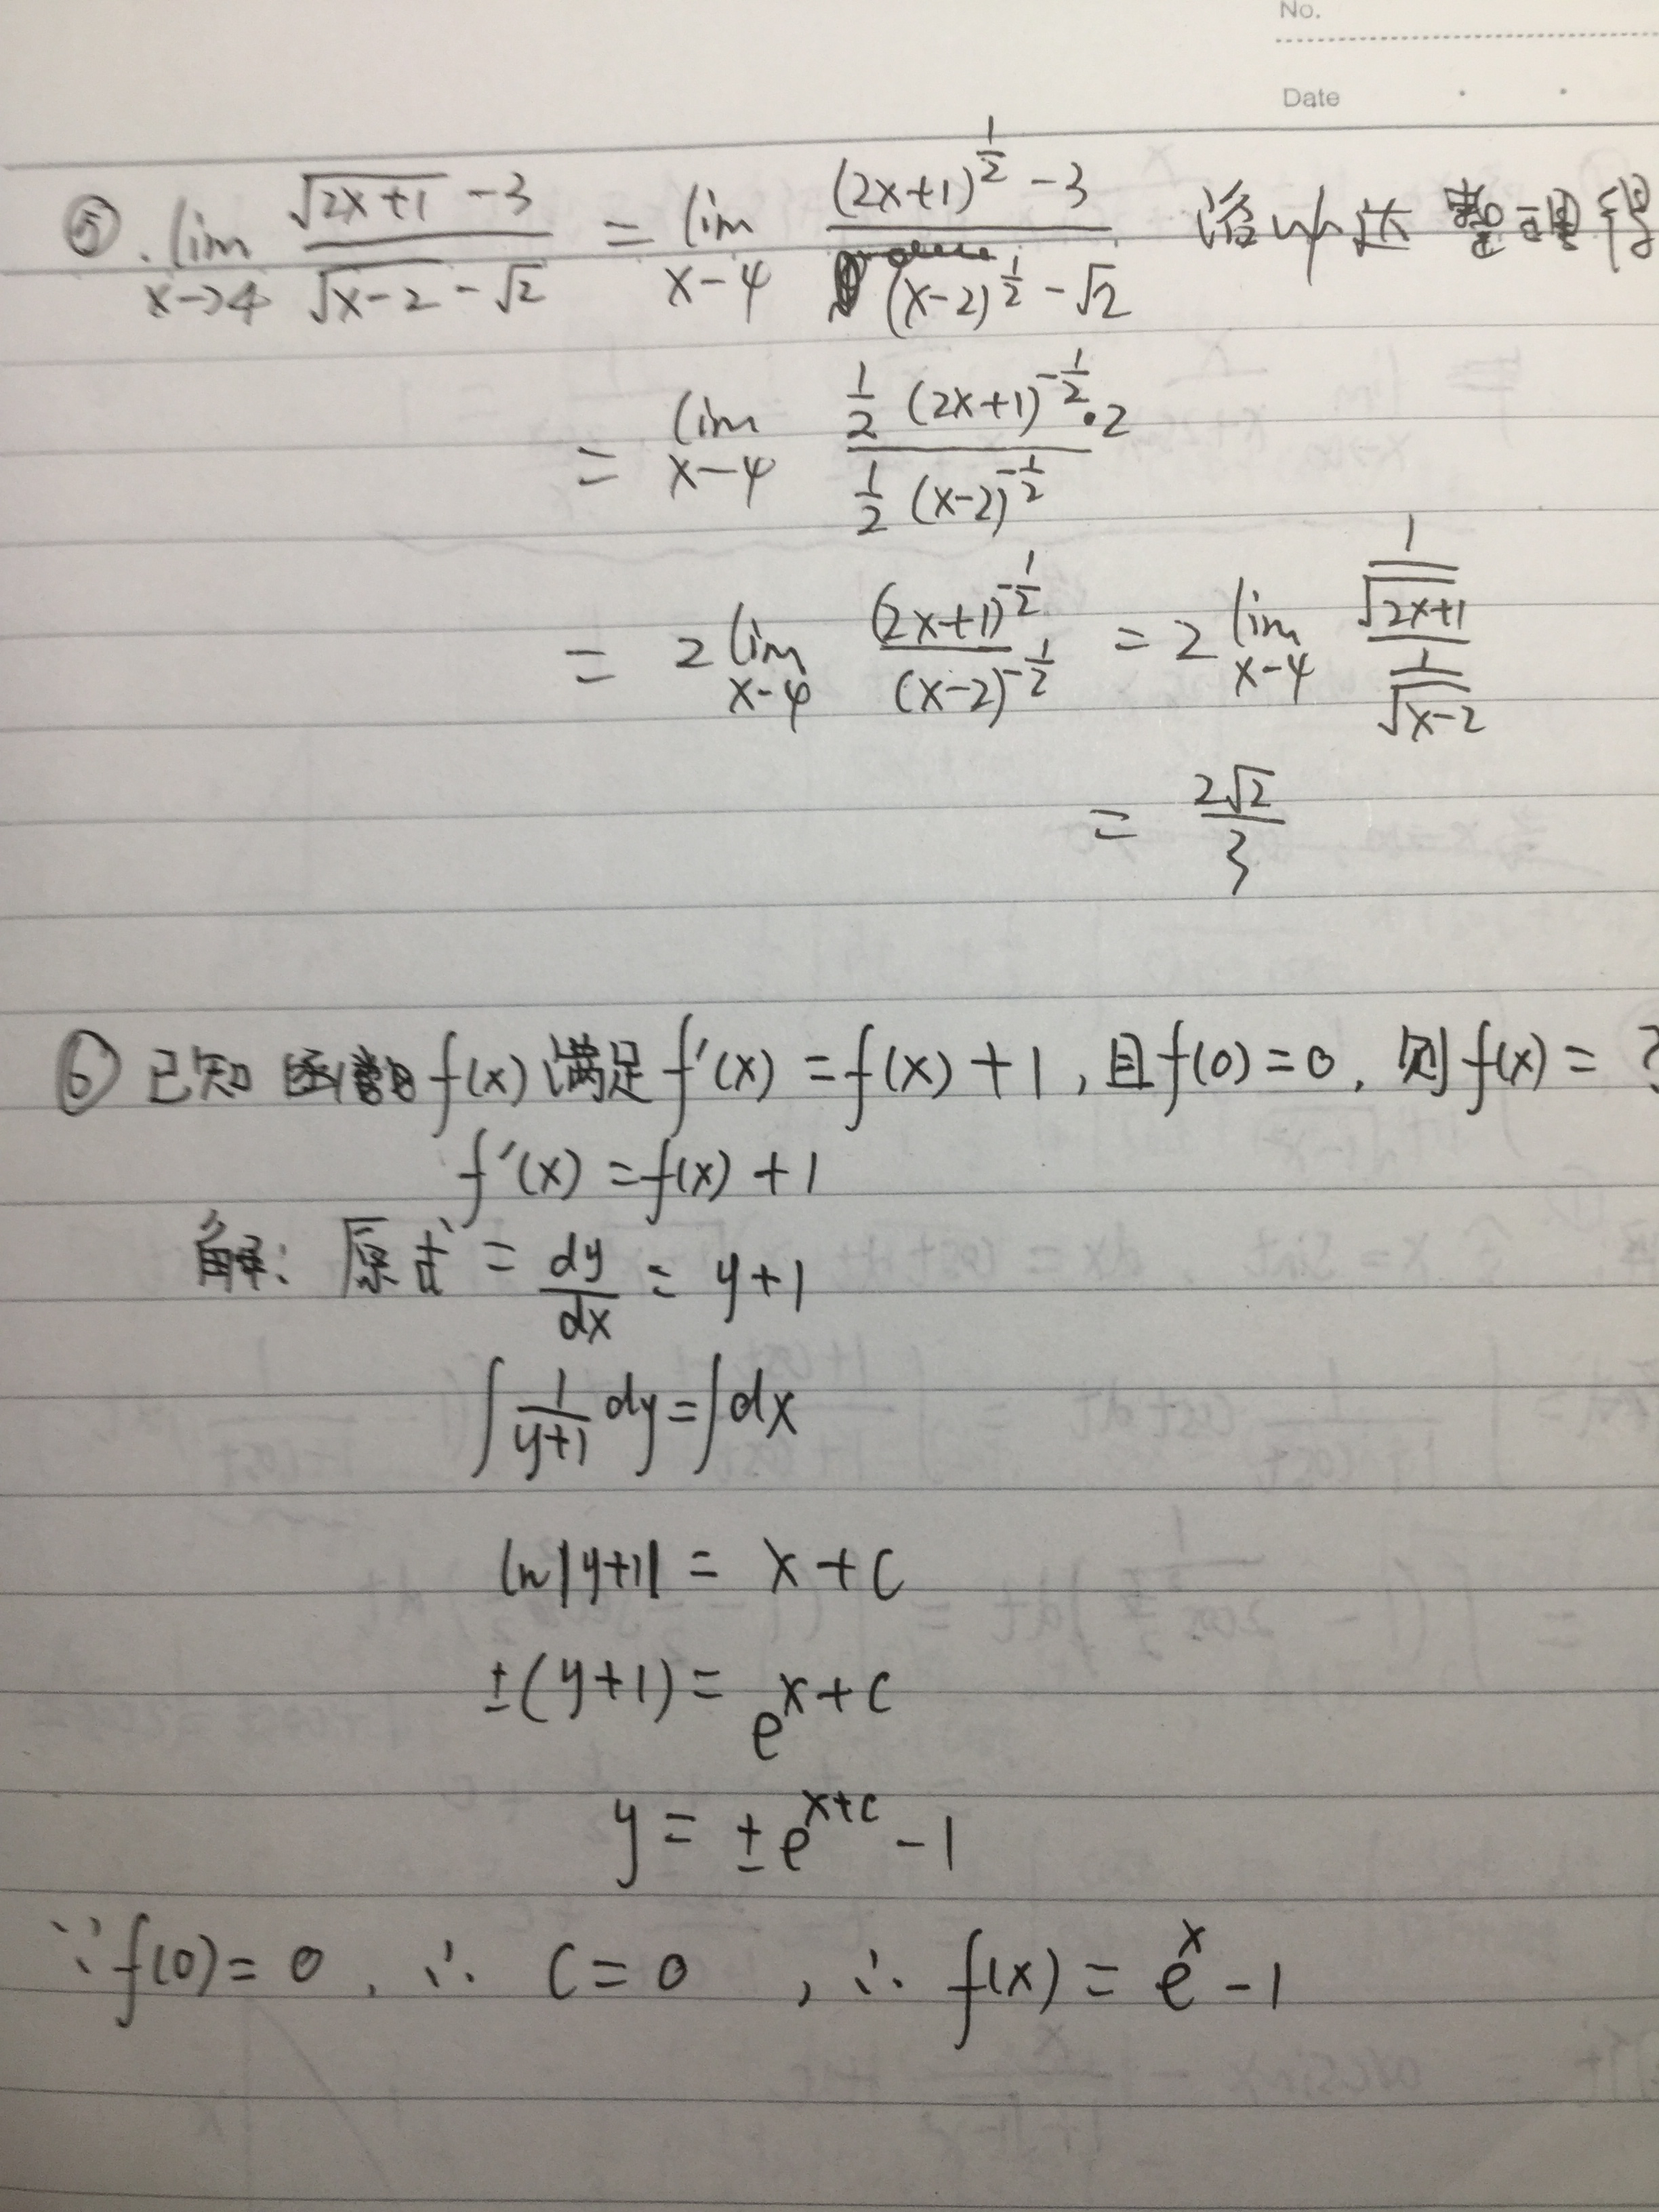 No.
Date
⑤. lim_{x→4} (√(2x+1) - 3)/(√(x-2) - √2) = lim_{x-4} ((2x+1)^{1/2} - 3)/((x-2)^{1/2} - √2) 洛必达 整理得
= lim_{x-4} (1/2 (2x+1)^{-1/2}·2)/(1/2 (x-2)^{-1/2})
= 2 lim_{x-4} (2x+1)^{-1/2}/(x-2)^{-1/2} = 2 lim_{x-4} (1/√(2x+1))/(1/√(x-2))
= 2√2/3
⑥ 已知函数f(x)满足f'(x)=f(x)+1,且f(0)=0.则f(x)=?
f'(x)=f(x)+1
解:原式= dy/dx = y+1
∫ 1/(y+1) dy=∫dx
ln|y+1| = x+c
±(y+1)= e^{x+c}
y = ±e^{x+c} -1
∵f(0)=0, ∴ C=0 , ∴ f(x)= e^x -1